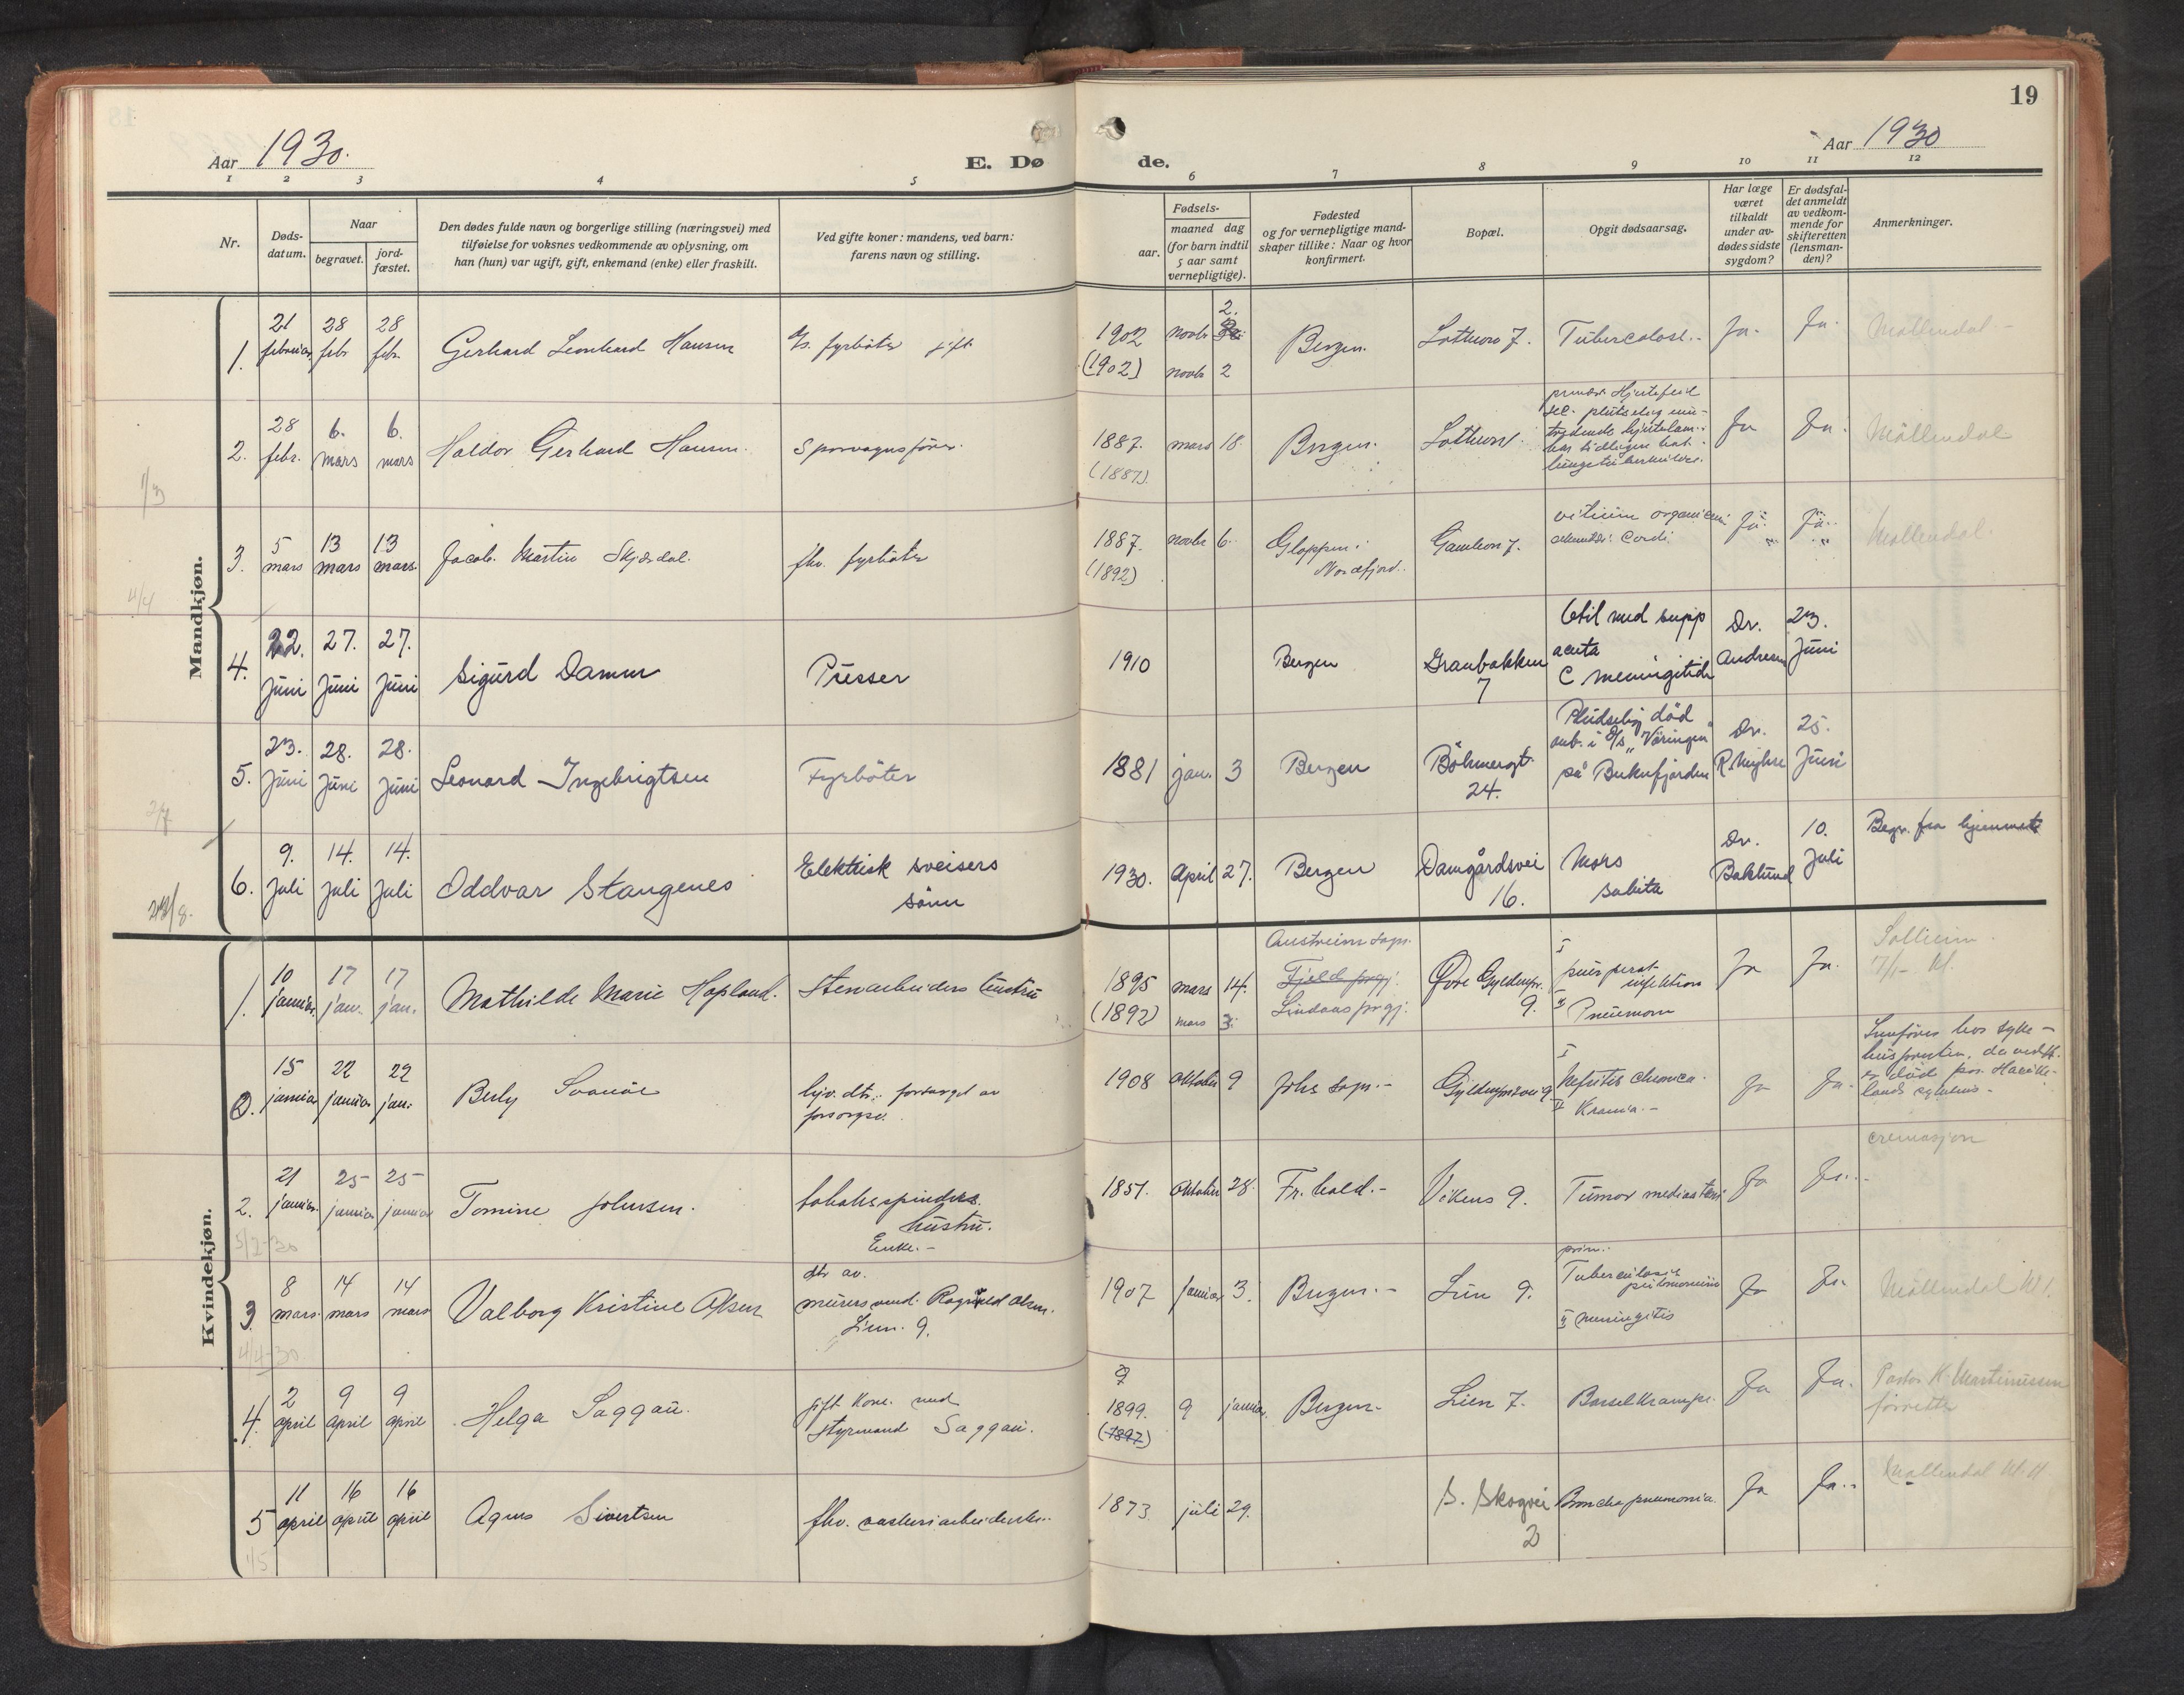 19
Aar 1930.
E. Dø
de.
Aar 1930
1 2 3 4 5
6 7 8 9 10 11 12
Nr.
Døds-
datum.
Naar
begravet.
jord-
fæstet.
Den dødes fulde navn og borgerlige stilling (næringsvei) med
tilføielse for voksnes vedkommende av oplysning, om
han (hun) var ugift, gift, enkemand (enke) eller fraskilt.
Ved gifte koner: mandens, ved barn:
farens navn og stilling.
Fødsels-
aar.
maaned dag
(for barn indtil
5 aar samt
vernepligtige).
Fødested
og for vernepligtige mand-
skaper tillike: Naar og hvor
konfirmert.
Bopæl.
Opgit dødsaarsag.
Har læge
været
tilkaldt
under av-
dødes sidste
sygdom?
Er dødsfal-
det anmeldt
av vedkom-
mende for
skifteretten
(lensman-
den)?
Anmerkninger.
Mandkjøn.
1.
21
februar
28
febr.
28
febr.
Gerhard Leonhard Hansen
fyrbøter gift
1902
(1902)
novbr 2.
novbr 2
Bergen.
Lotheves 7.
Tuberculose.
Ja.
Ja.
Møllendal
2.
28
febr.
6.
mars
6.
mars
Haldor Gerhard Hansen.
Sporvagnsfører.
1887.
(1887).
mars 18.
Bergen.
primær Hjertefeil
Ja
Ja.
Møllendal
1/3
3.
5
mars
13
mars
13
mars.
Jacob Martin Skjærdal.
fhv. fyrbøter
1887.
(1892)
novbr 6.
Gloppen i
Nordfjord.
vitium organicum
Cordi.
Ja.
Ja.
Møllendal
4/4
4.
22.
Juni
27.
Juni
27.
Juni
Sigurd Damm
Presser
1910
Bergen
Granbakken
7
Otit med supp
acuta
C meningitid
Dr.
Andresen
23.
Juni
5.
23.
Juni
28.
Juni
28.
Juni
Leonard Ingebrigtsen
Fyrbøter
1881 jan. 3
Bergen
Bøhmergt.
24.
Pludselig død
omb. i D/s „Väringen"
på Buknfjorden
Dr.
25.
Juni
2/7
6.
9.
Juli
14.
Juli
14.
Juli
Oddvar Stangenes
Elektrisk sveisers
sønn
1930. April 27.
Bergen
Damgårdsvei
16.
Mors
subita
Dr.
Baklund
10.
Juli
Begr. fra hjemmet
Kvindekjøn.
1.
10
januar.
17
jan.
17
jan.
Mathilde Marie Hopland.
Stenarbeiders hustru
1895
(1892)
mars 14.
mars 3.
Austreim sogn.
Fjeld prgj.
Lindaas prgj.
Øvre Gyldenpr.
9.
I
puerperal
infektion
II Pneumoni
Ja
Ja.
Solheim
0.
15
januar
22
januar
22
jan.
Berly Svanøe
1908 oktober 9
Johs sogn.
I
Nefritis chronica.
II
Ja
Ja.
2.
21
januar.
25
januar
25
januar
Tomine Johnsen.
tobakspinders
hustru.
Enke.
1851. oktober 28.
Fr.hald.
Vikens 9.
Tumor mediastini
Ja
Ja.
cremasjon
5/2-30
3.
8
mars.
14
mars
14
mars
Valborg Kristine Olsen
dtr av.
murersvend. Ragnvald Olsen.
Lien. 9.
1907 januar 3.
Bergen.
Lien 9.
prim.
Tuberculosis
pulmonum
II meningitis
Ja
Ja.
Møllendal
4/4-30.
4.
2
april
9
april
9
april
Helga Saggau.
gift kone med
styrmand Saggau.
1899.
(1897)
9 januar.
Bergen.
Lien 7.
Barselkrampe.
Ja
Ja.
Pastor K. Martinussen
forrettet
5
11
april
16
april
16
april
Agnes Sivertsen
fhv. vaskeriarbeiderske.
1873. juli 29.
S. Skogvei
2
Broncho pneumonia.
Ja
Ja.
Møllendal
1/5